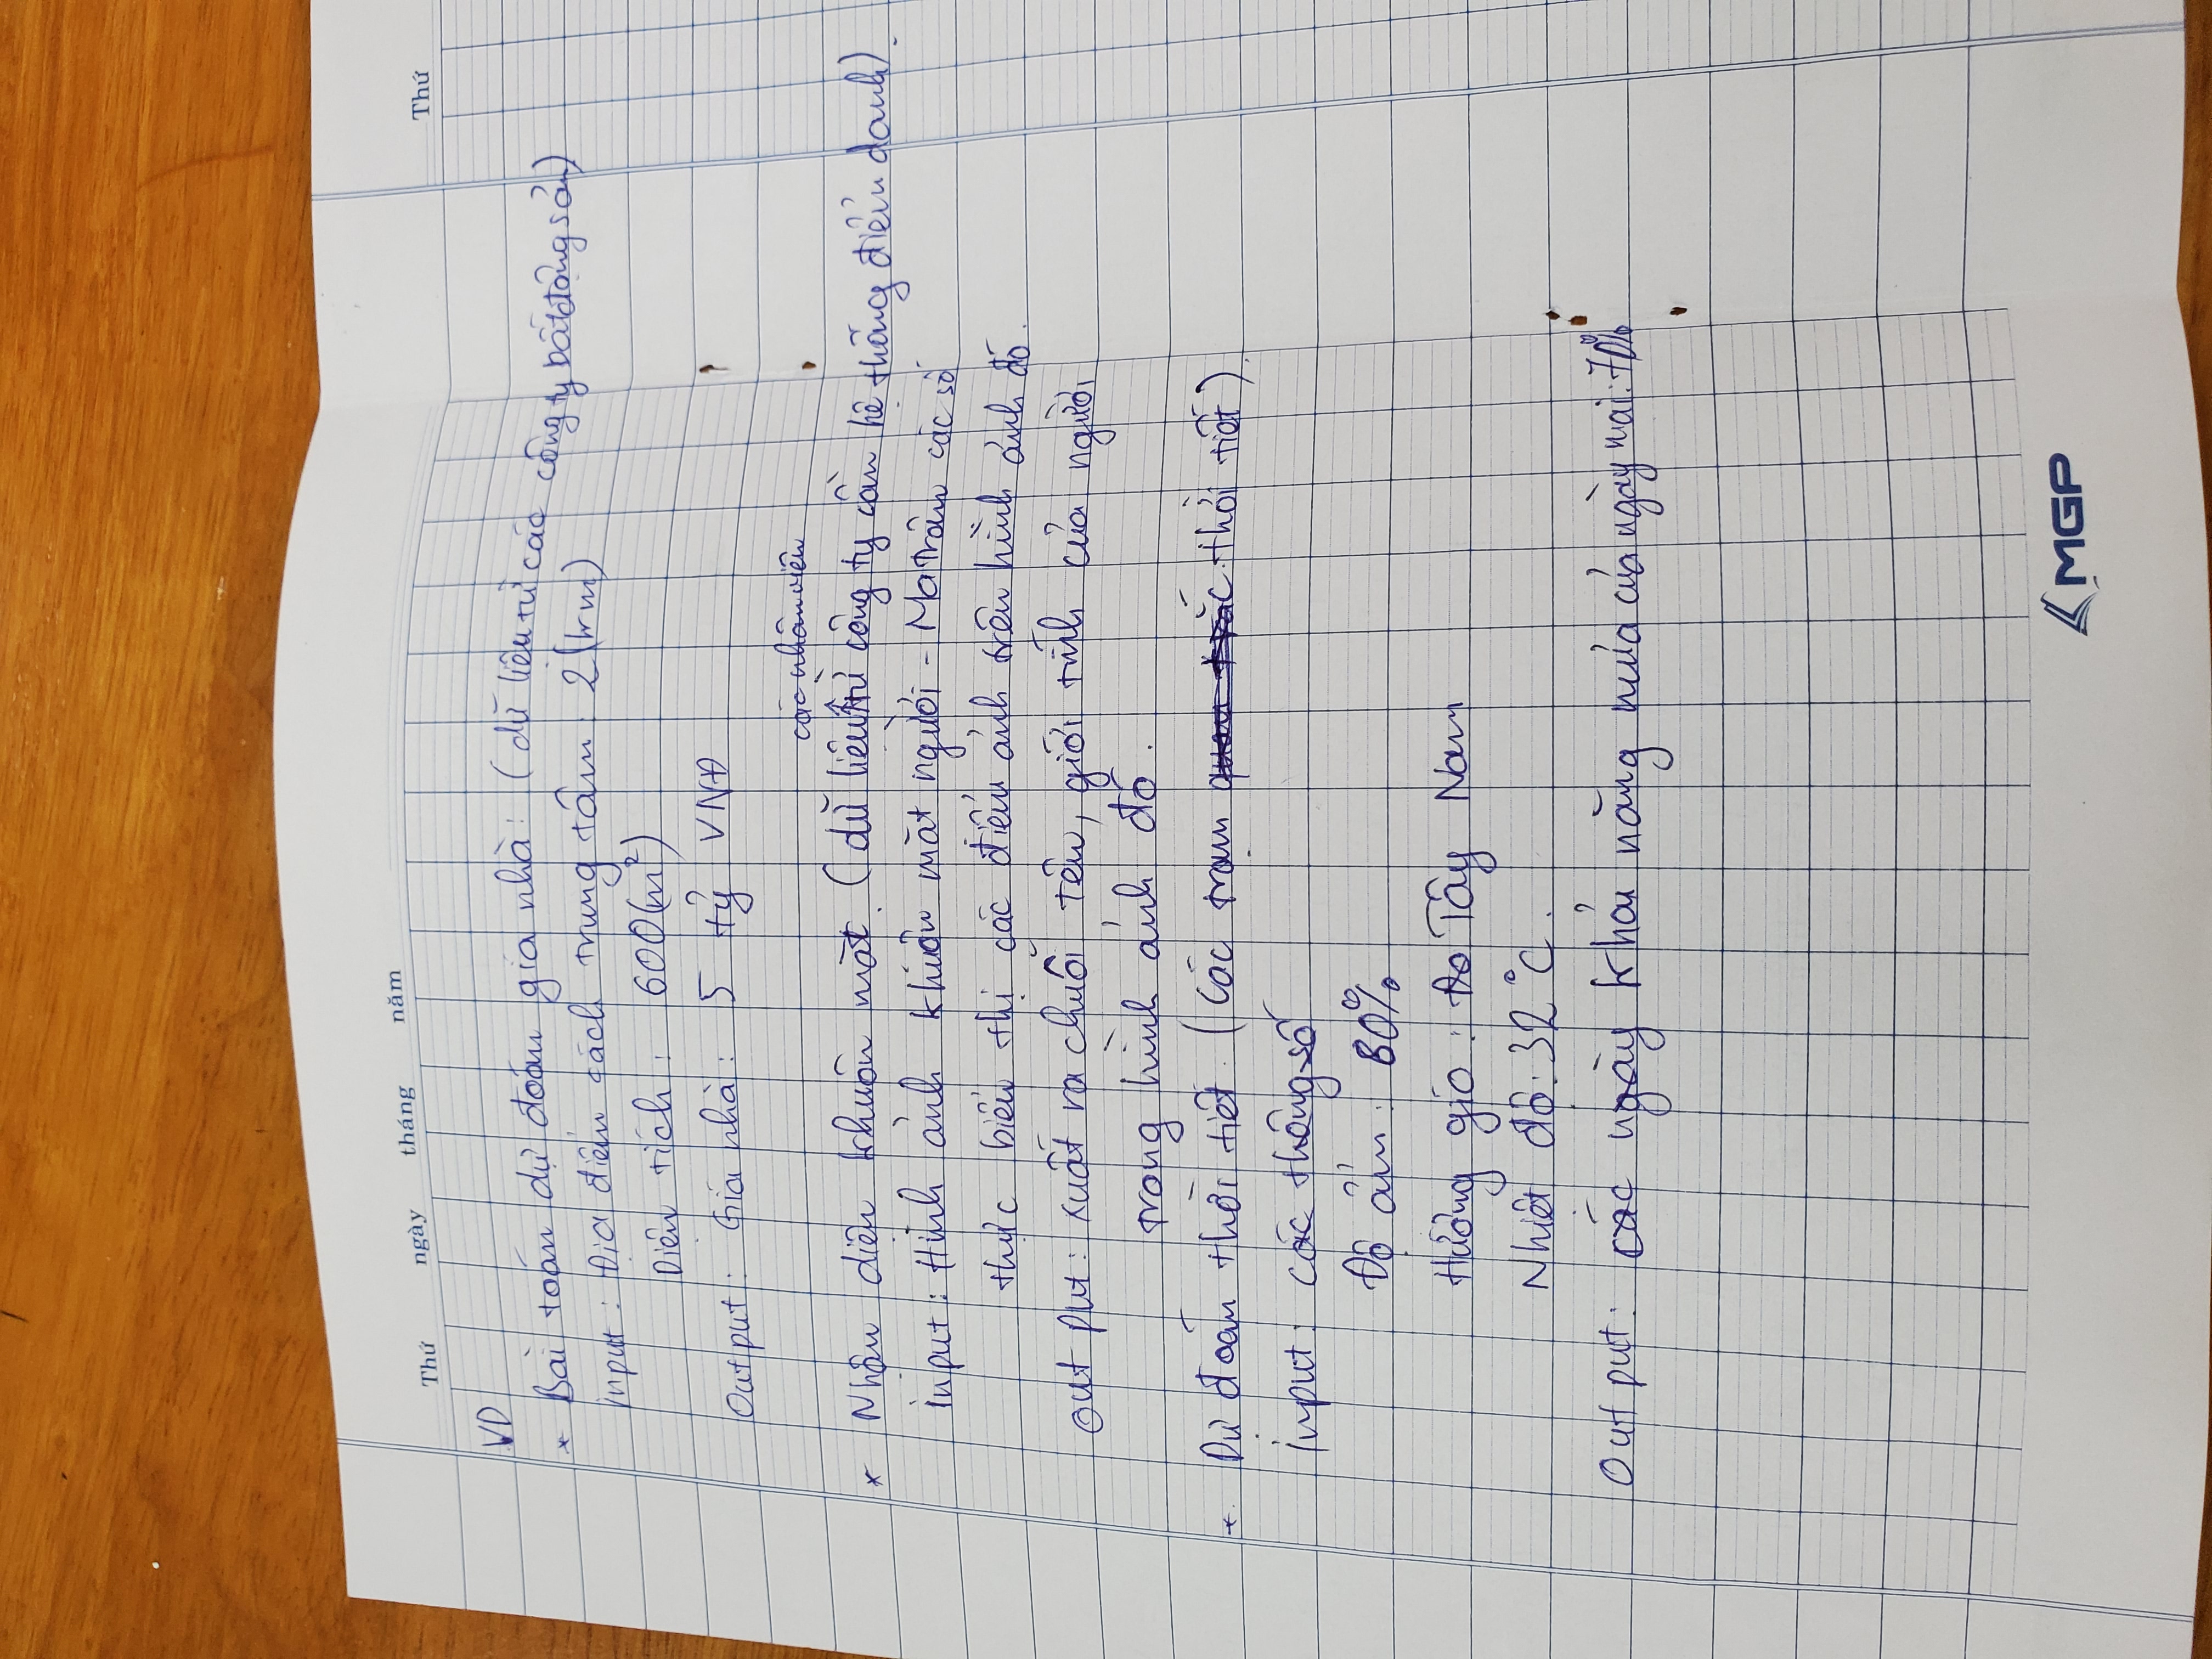 Thứ ngày tháng năm
Thứ
VD
* Bài toán dự đoán giá nhà: (dữ liệu từ các công ty bất động sản)
input: Địa điểm cách trung tâm 2(km)
Diện tích: 600(m²)
Output: Giá nhà: 5 tỷ VNĐ
các nhân viên
* Nhận diện khuôn mặt. (dữ liệu từ công ty cần hệ thống điểm danh).
input: Hình ảnh khuôn mặt người - Ma trận các số
thực biểu thị các điểm ảnh trên hình ảnh đó.
Out put: xuất ra chuỗi tên, giới tính của người
trong hình ảnh đó.
* Dự đoán thời tiết. (Các trạm quan trắc thời tiết).
input: các thông số
Độ ẩm: 80%
Hướng gió: Đo Tây Nam
Nhiệt độ: 32°C.
Out put: các ngày khả năng mưa của ngày mai: 70%
MGP